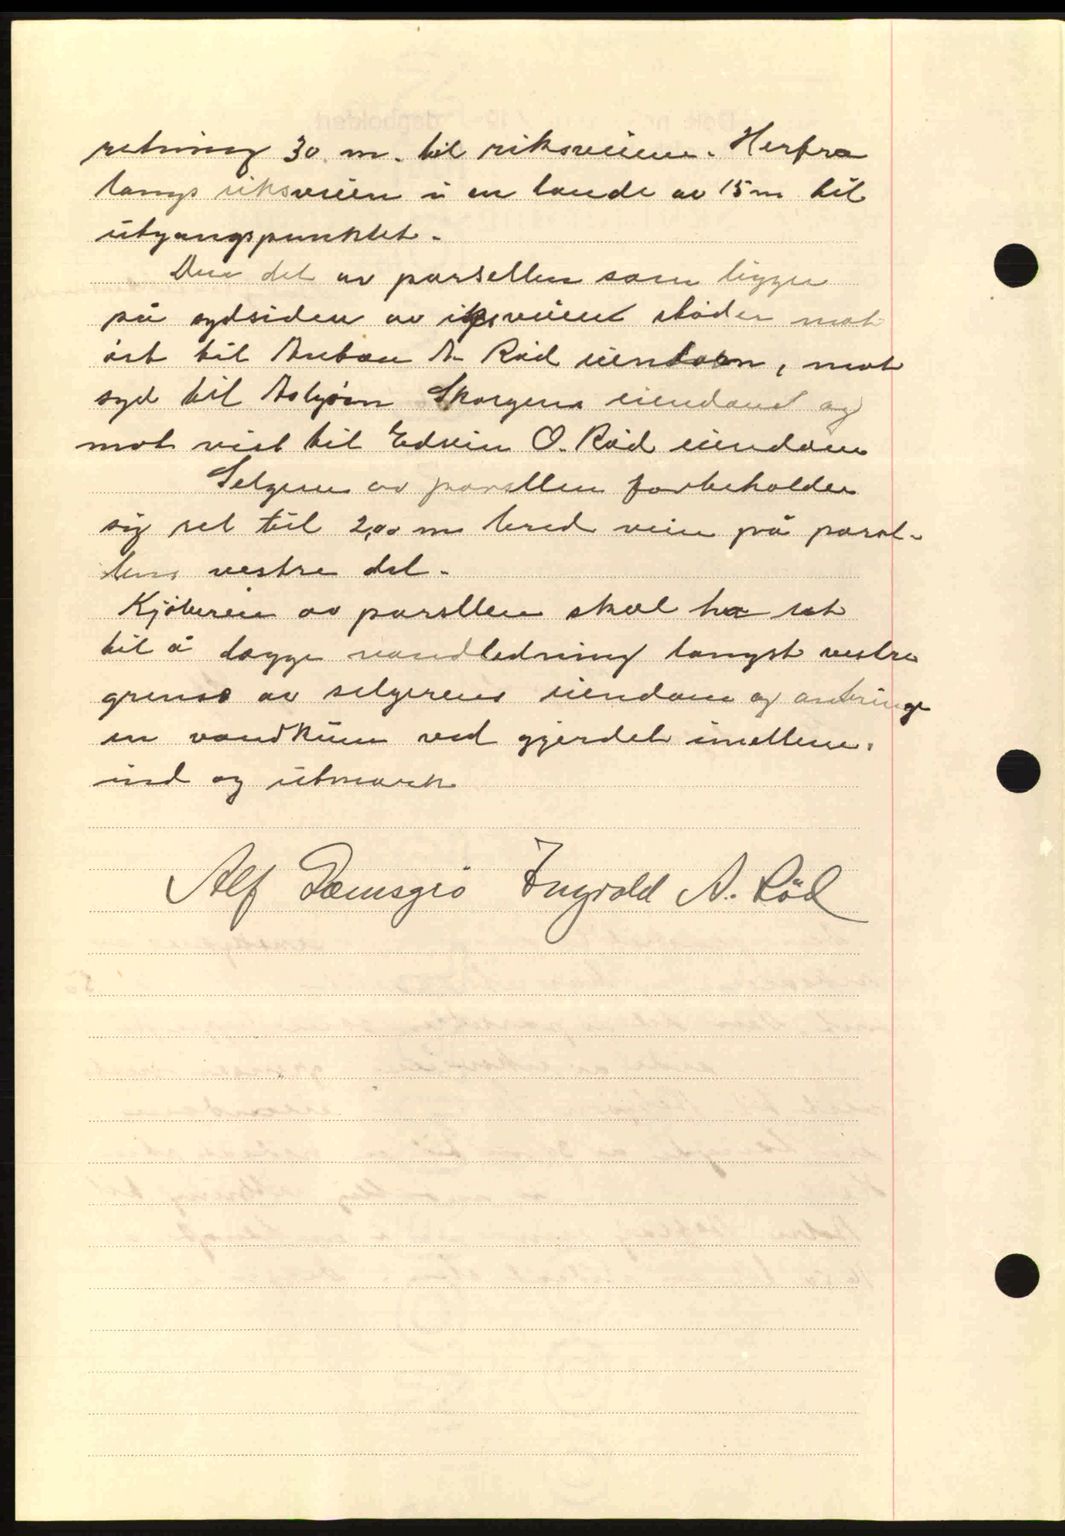 retning 30 m. til riksveiene. Herfra
langs riksveien i en lende av 15 m til
utgangspunktet.
Den del av parsellen som ligger
på sydsiden av riksveien støder mot
øst til Anton A. Röd eiendom, mot
syd til Asbjörn Skorgens eiendom og
mot vest til Edvin O. Röd eiendom
Selgeren av parsellen forbeholder
sig ret til 2,00 m bred veie på parsel-
lens vestre del.
Kjöberen av parsellen skal ha ret
til å lægge vandledning langst vestre
grense av selgerens eiendom og anbringe
en vandkum ved gjerdet imellem
ind og utmark
Alf Ingvald A. Röd